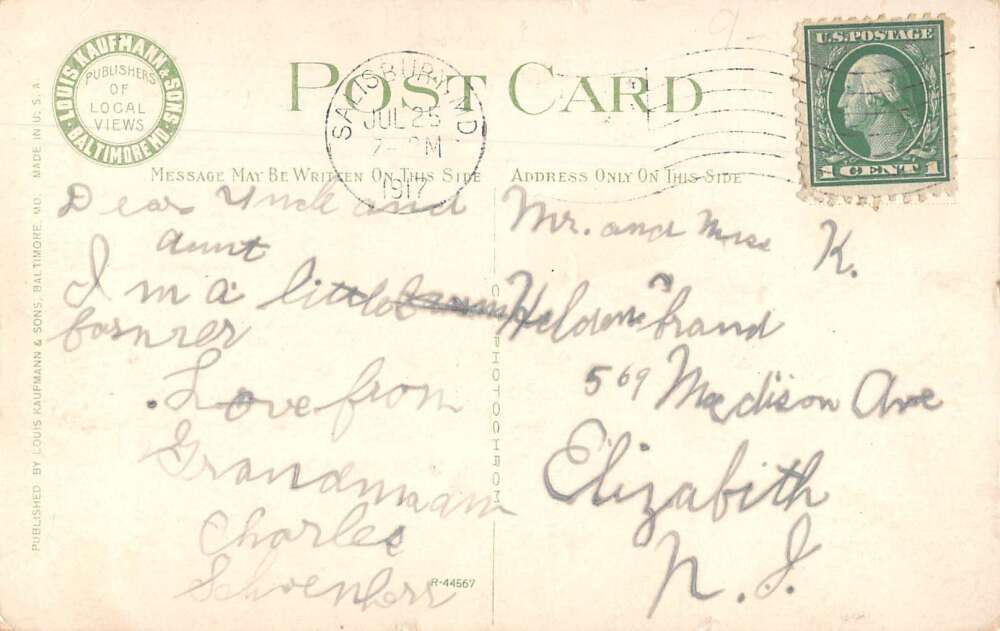 LOUIS KAUFMANN & SONS
BALTIMORE MD.
PUBLISHERS
OF
LOCAL
VIEWS
POST CARD
SALISBURY MD
JUL 25
1917
U.S. POSTAGE
1 CENT 1
MESSAGE MAY BE WRITTEN ON THIS SIDE
ADDRESS ONLY ON THIS SIDE
Dear Uncle and
Aunt
I m a little
formrer
Love from
Grandmaam
Charles
Mr. and Miss K.
569 Madison Ave
Elizabith
N. J.
PHOTOCHROM
R-44567
PUBLISHED BY LOUIS KAUFMANN & SONS, BALTIMORE, MD. MADE IN U.S.A